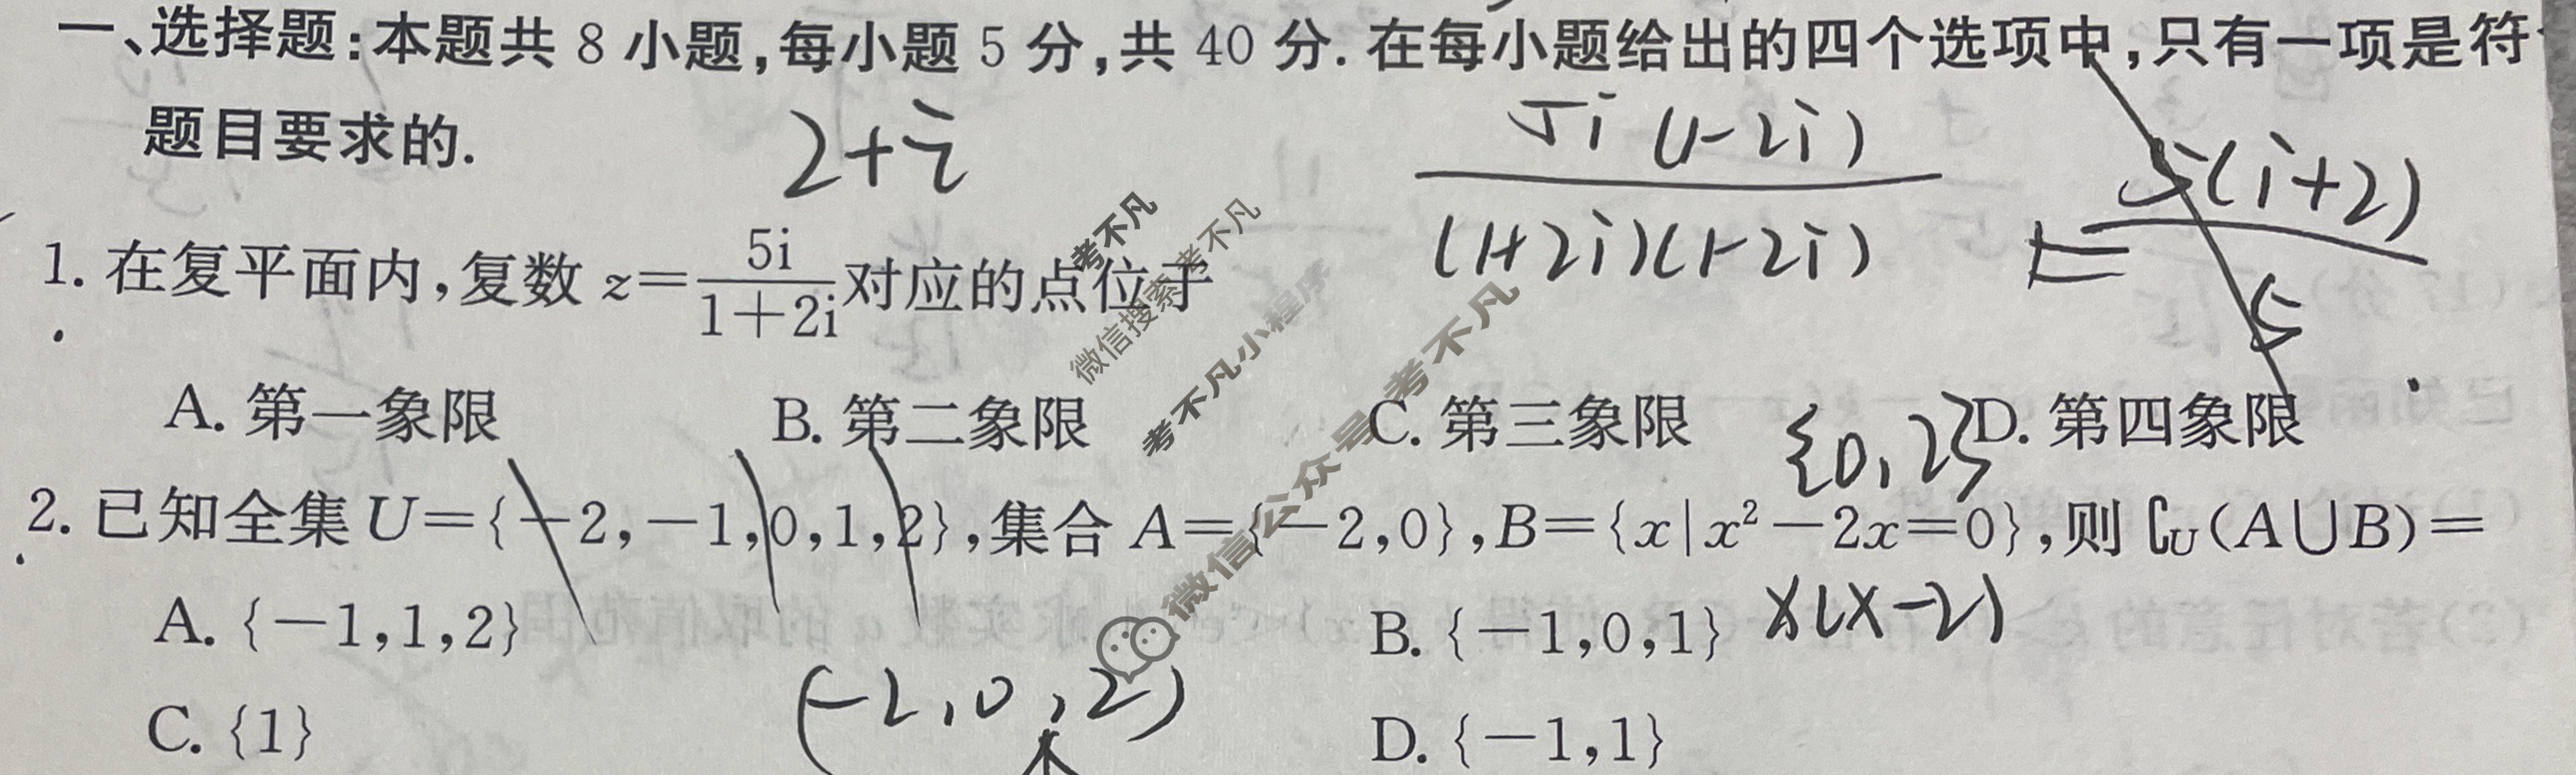 一、选择题:本题共 8 小题,每小题 5 分,共 40 分. 在每小题给出的四个选项中,只有一项是符
题目要求的.
2+i
5i(1-2i)
(1+2i)(1-2i)
= 5(i+2)
5
1. 在复平面内,复数 z=5i/(1+2i)对应的点位于
A. 第一象限 B. 第二象限 C. 第三象限 D. 第四象限
{0,2}
2. 已知全集 U={-2,-1,0,1,2},集合 A={-2,0},B={x|x²-2x=0},则 ∁U(A∪B)=
A. {-1,1,2} B. {-1,0,1}
x(x-2)
(-2,0,2)
C. {1} D. {-1,1}
考不凡
微信搜索考不凡
考不凡小程序
微信公众号 考不凡